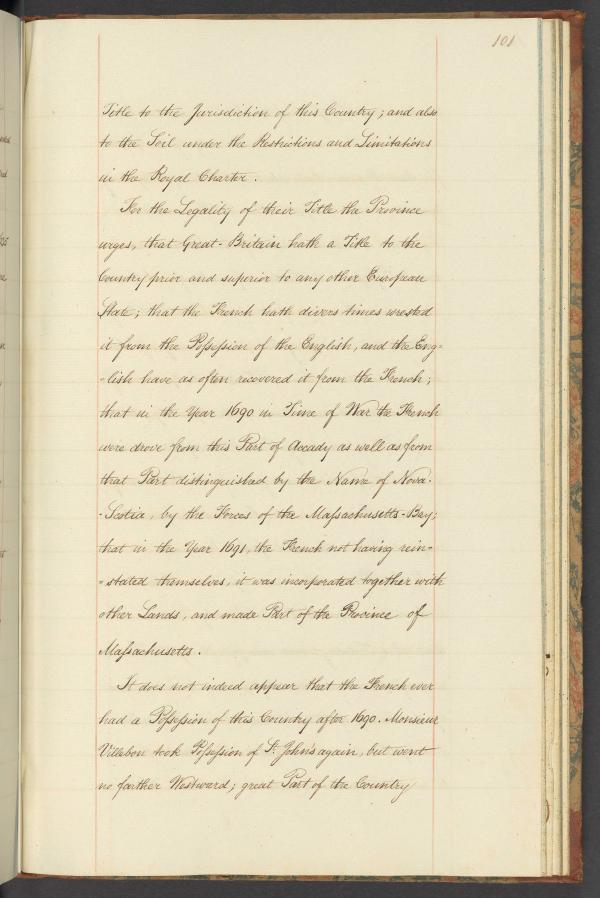 101
Title to the Jurisdiction of this Country; and also
to the Soil under the Restrictions and Limitations
in the Royal Charter.
For the Legality of their Title the Province
urges, that Great-Britain hath a Title to the
Country prior and superior to any other European
State; that the French hath divers times wrested
it from the Poſseſsion of the English, and the Eng=
=lish have as often recovered it from the French;
that in the Year 1690 in Time of War the French
were drove from this Part of Accady as well as from
that Part distinguished by the Name of Nova-
-Scotia, by the Forces of the Maſsachusetts-Bay;
that in the Year 1691, the French not having rein-
=stated themselves, it was incorporated together with
other Lands, and made Part of the Province of
Maſsachusetts.
It does not indeed appear that the French ever
had a Poſseſsion of this Country after 1690. Monsieur
Villebon took Poſseſsion of St. John's again, but went
no farther Westward; great Part of the Country